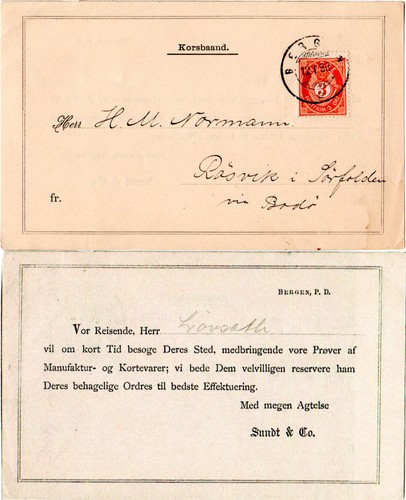 Korsbaand.
BERGEN
3
Herr H. M. Normann.
Røsvik i Sørfolden
via Bodø
fr.
BERGEN, P. D.
Vor Reisende, Herr
vil om kort Tid besøge Deres Sted, medbringende vore Prøver af
Manufaktur- og Kortevarer; vi bede Dem velvilligen reservere ham
Deres behagelige Ordres til bedste Effektuering.
Med megen Agtelse
Sundt & Co.